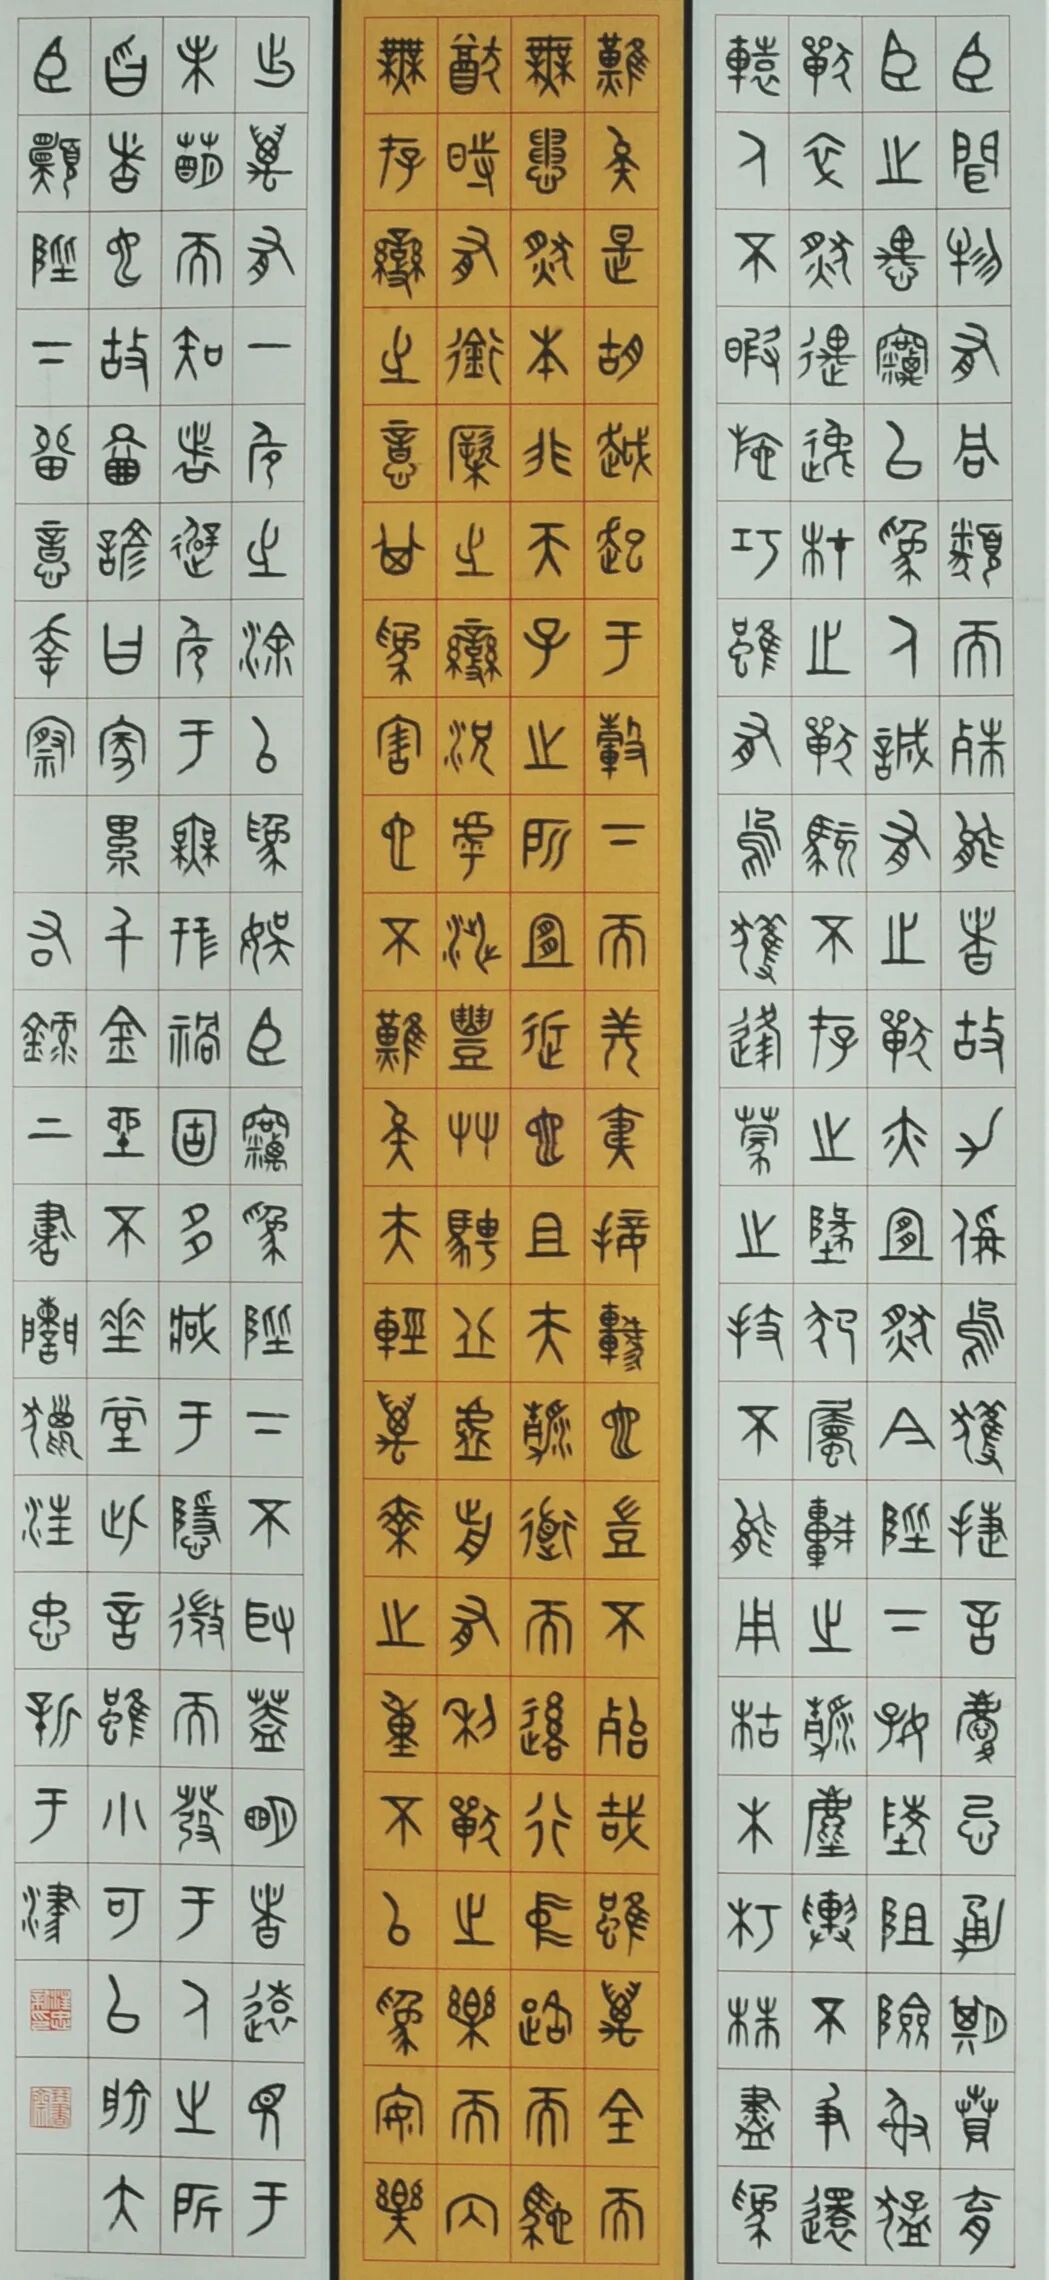 臣聞物有同類而殊能者故力稱烏獲捷言慶忌勇期賁育
臣之愚竊以為人誠有之獸亦宜然今陛下好陵阻險射猛
獸卒然遇逸材之獸駭不存之地犯屬車之清塵輿不及還
轅人不暇施巧雖有烏獲逢蒙之技不能用枯木朽株盡為
難矣是胡越起于轂下而羌夷接軫也豈不殆哉雖萬全而
無患然本非天子之所宜近也且夫清道而後行中路而馳
猶時有銜橛之變況乎涉豐草騁丘虛前有利獸之樂而內
無存變之意其為害也不難矣夫輕萬乘之重不以為安樂
出萬有一危之塗以為娛臣竊為陛下不取蓋明者遠見于
未萌而知者避危于無形禍固多臧于隱微而發于人之所
忽者也故鄙諺曰家累千金坐不垂堂此言雖小可以喻大
臣願陛下留意幸察 右錄上書諫獵汪忠新于津